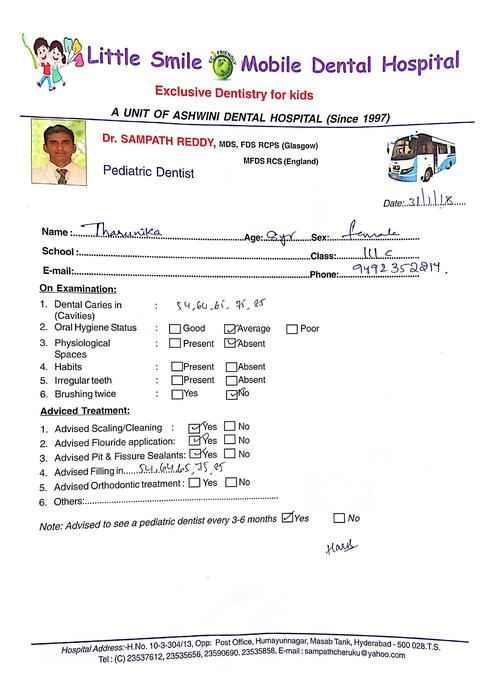 Little Smile Mobile Dental Hospital
Exclusive Dentistry for kids
A UNIT OF ASHWINI DENTAL HOSPITAL (Since 1997)
Dr. SAMPATH REDDY, MDS, FDS RCPS (Glasgow)
MFDS RCS (England)
Pediatric Dentist
Date: 31/1/18
Name : Tharunika Age: 8yr Sex: female
School : Class: III C
E-mail: Phone: 9492352814.
On Examination:
1. Dental Caries in : 54, 64, 65, 75, 85
(Cavities)
2. Oral Hygiene Status : Good Average Poor
3. Physiological : Present Absent
Spaces
4. Habits : Present Absent
5. Irregular teeth : Present Absent
6. Brushing twice : Yes No
Adviced Treatment:
1. Advised Scaling/Cleaning : Yes No
2. Advised Flouride application: Yes No
3. Advised Pit & Fissure Sealants: Yes No
4. Advised Filling in 54, 64, 65, 75, 85
5. Advised Orthodontic treatment : Yes No
6. Others:
Note: Advised to see a pediatric dentist every 3-6 months Yes No
Hospital Address:-H.No. 10-3-304/13, Opp: Post Office, Humayunnagar, Masab Tank, Hyderabad - 500 028.T.S.
Tel : (C) 23537612, 23535656, 23590690, 23535858, E-mail : sampathcheruku@yahoo.com